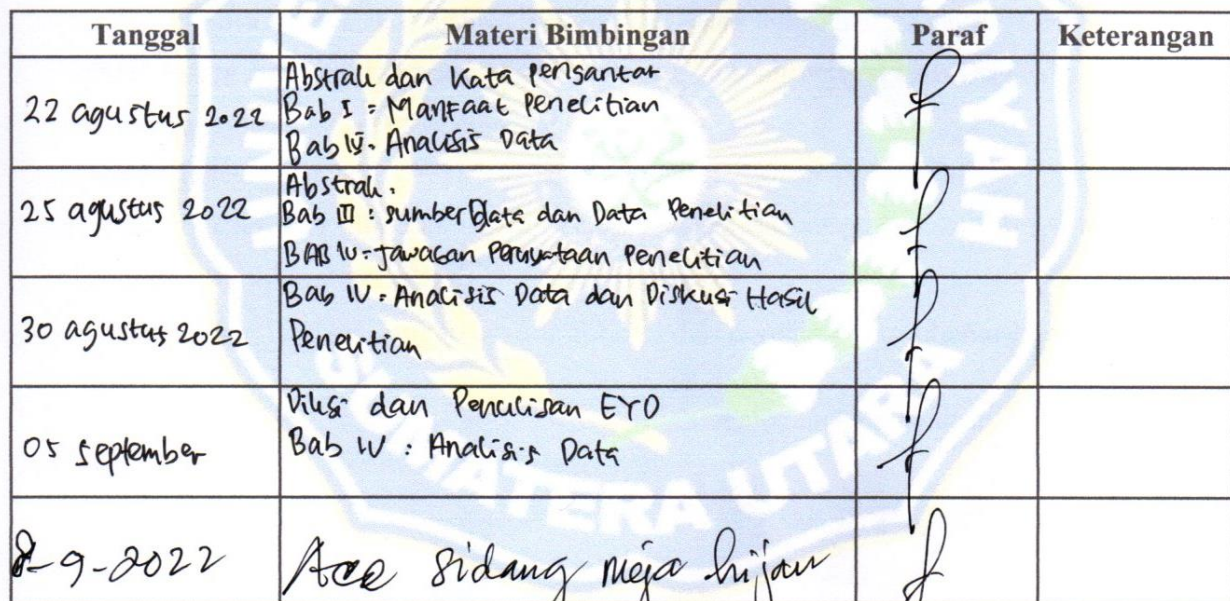 Tanggal Materi Bimbingan Paraf Keterangan
22 agustus 2022
Abstrak dan Kata pengantar
Bab I : Manfaat penelitian
Bab IV : Analisis Data
25 agustus 2022
Abstrak :
Bab III : sumber Data dan Data Penelitian
BAB IV : Jawaban Pernyataan Penelitian
30 agustus 2022
Bab IV : Analisis Data dan Diskusi Hasil
Penelitian
05 september
Diksi dan Penulisan EYD
Bab IV : Analisis Data
8-9-2022
Acc sidang meja hijau
SUMATERA UTARA